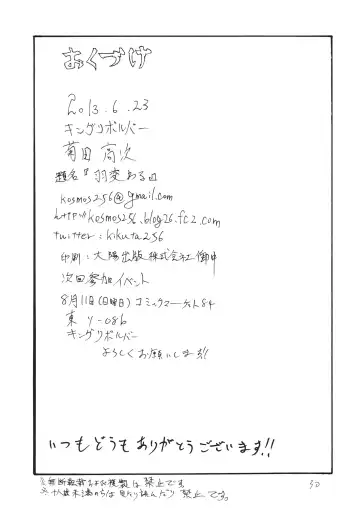 おくづけ
2013.6.23
キングリボルバー
菊田 高次
題名『羽変ある日
kosmos256@gmail.com
http://kosmos256.blog26.fc2.com
twitter:kikuta256
印刷:大陽出版株式会社御中
次回参加イベント
8月11日(日曜日)コミックマーケット84
東 リ-08b
キングリボルバー
よろしくお願いします!!
いつもどうもありがとうございます!!
※無断転載および複製は禁止です
※十八歳未満の方は見たり読んだり禁止です。
30